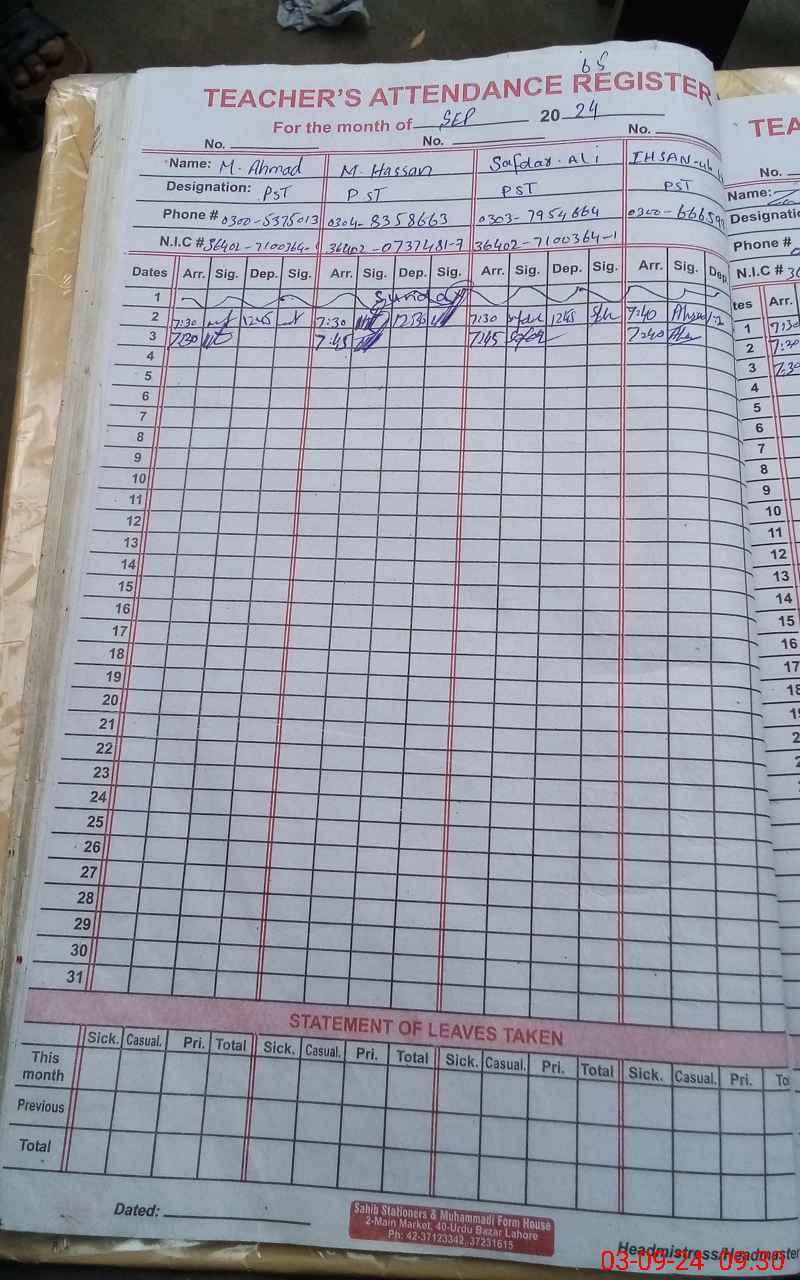 65
TEACHER'S ATTENDANCE REGISTER
For the month of SEP 2024
No. No. No.
Name: M. Ahmad M. Hassan Safdar. Ali IHSAN-
Designation: PST PST PST PST
Phone # 0300-5375013 0304-8358663 0303-7954664 0300-66659
N.I.C # 36402-7100364- 36402-0737481-7 36402-7100364-1
Dates Arr. Sig. Dep. Sig. Arr. Sig. Dep. Sig. Arr. Sig. Dep. Sig. Arr. Sig. Dep
1 Sunday
2 7:30 1245 7:30 1230 7:30 1245 7:40
3 7:30 7:45 7:45 7:40
4
5
6
7
8
9
10
11
12
13
14
15
16
17
18
19
20
21
22
23
24
25
26
27
28
29
30
31
STATEMENT OF LEAVES TAKEN
Sick. Casual. Pri. Total Sick. Casual. Pri. Total Sick. Casual. Pri. Total Sick. Casual. Pri. To
This month
Previous
Total
Dated:
Sahib Stationers & Muhammadi Form House
2-Main Market, 40-Urdu Bazar Lahore
Ph: 42-37123342, 37231615
Headmistress/Headmaster
TEA
No.
Name:
Designatio
Phone #
N.I.C # 36
tes Arr.
1 7:30
2 7:30
3 7:30
4
5
6
7
8
9
10
11
12
13
14
15
16
17
03-09-24 09:30